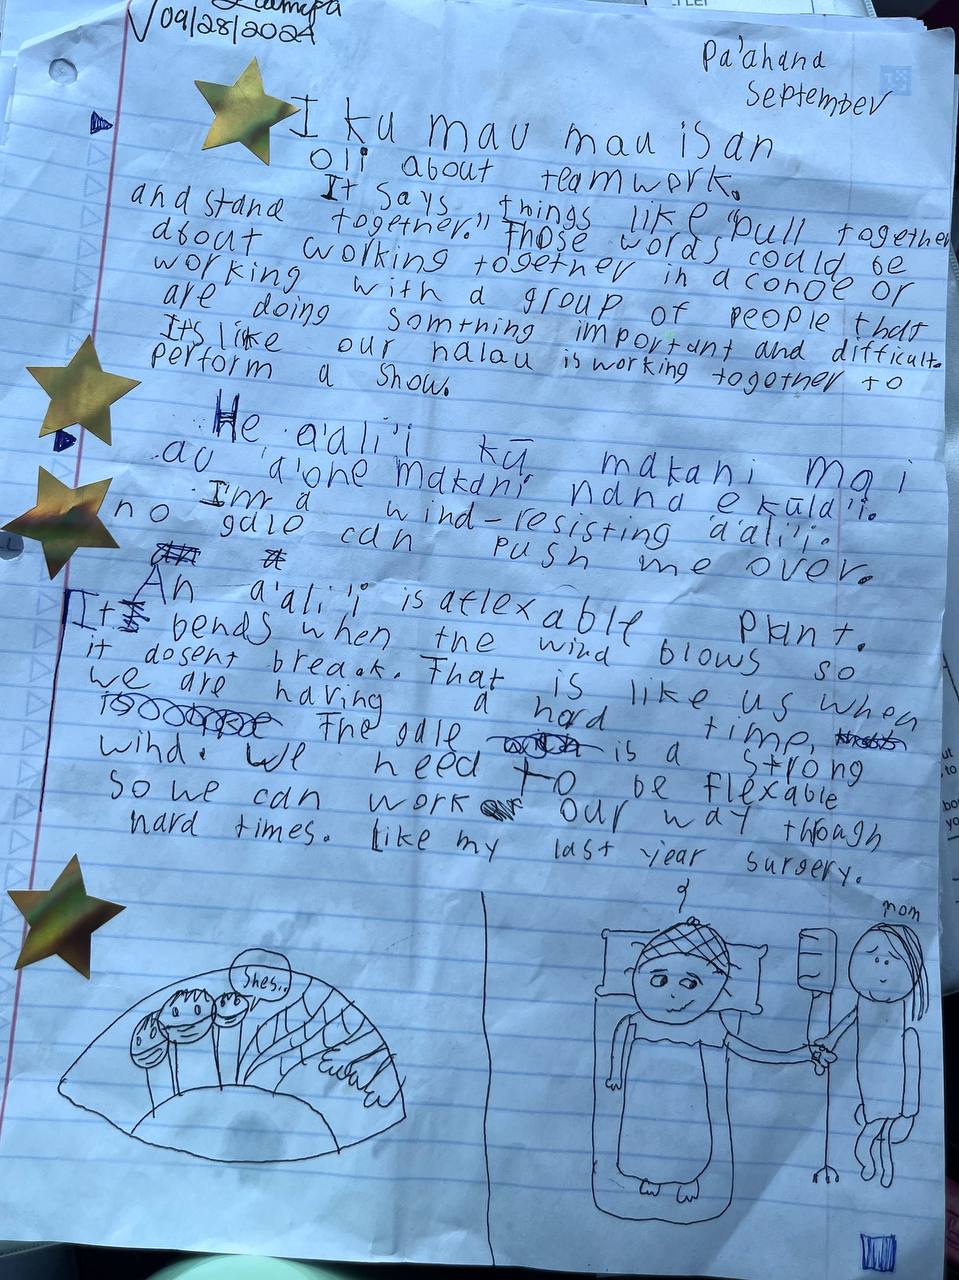 09/28/2024
Pa'ahana
September
I ku mau mau is an
Oli about teamwork.
It says things like "pull together
and stand together." Those words could be
about working together in a canoe or
working with a group of people that
are doing somthing important and difficult.
It's like our halau is working together to
perform a show.
He a'ali'i kū makani mai
au 'a'ohe makani nana e kūla'i.
I'm a wind-resisting a'ali'i.
no gale can push me over.
An a'ali'i is aflexable plant.
It bends when the wind blows so
it dosent break. That is like us when
we are having a hard time.
The gale is a strong
wind. We need to be flexable
so we can work our way though
hard times. Like my last year surgery.
mom
Shes..